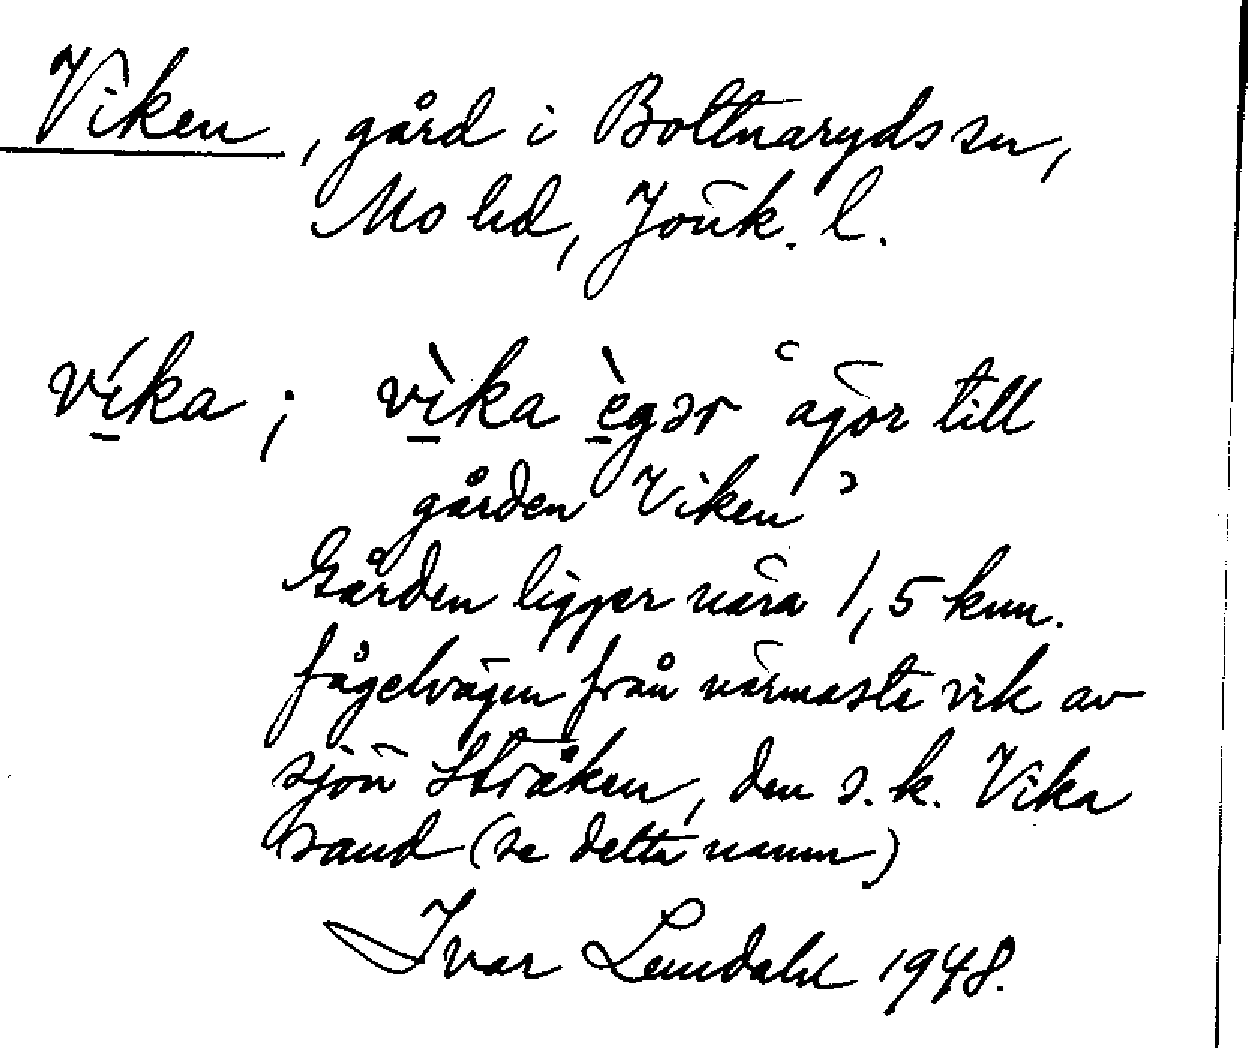 Viken, gård i Bottnaryds sn,
Mo hd, Jönk. l.
víka; vìka ègər ʿägor till
gården Viken ʾ
Gården ligger nära 1,5 km.
fågelvägen från närmaste vik av
sjön Stråken, den s.k. Vika
sand (se detta namn)
Ivar Lundahl 1948.